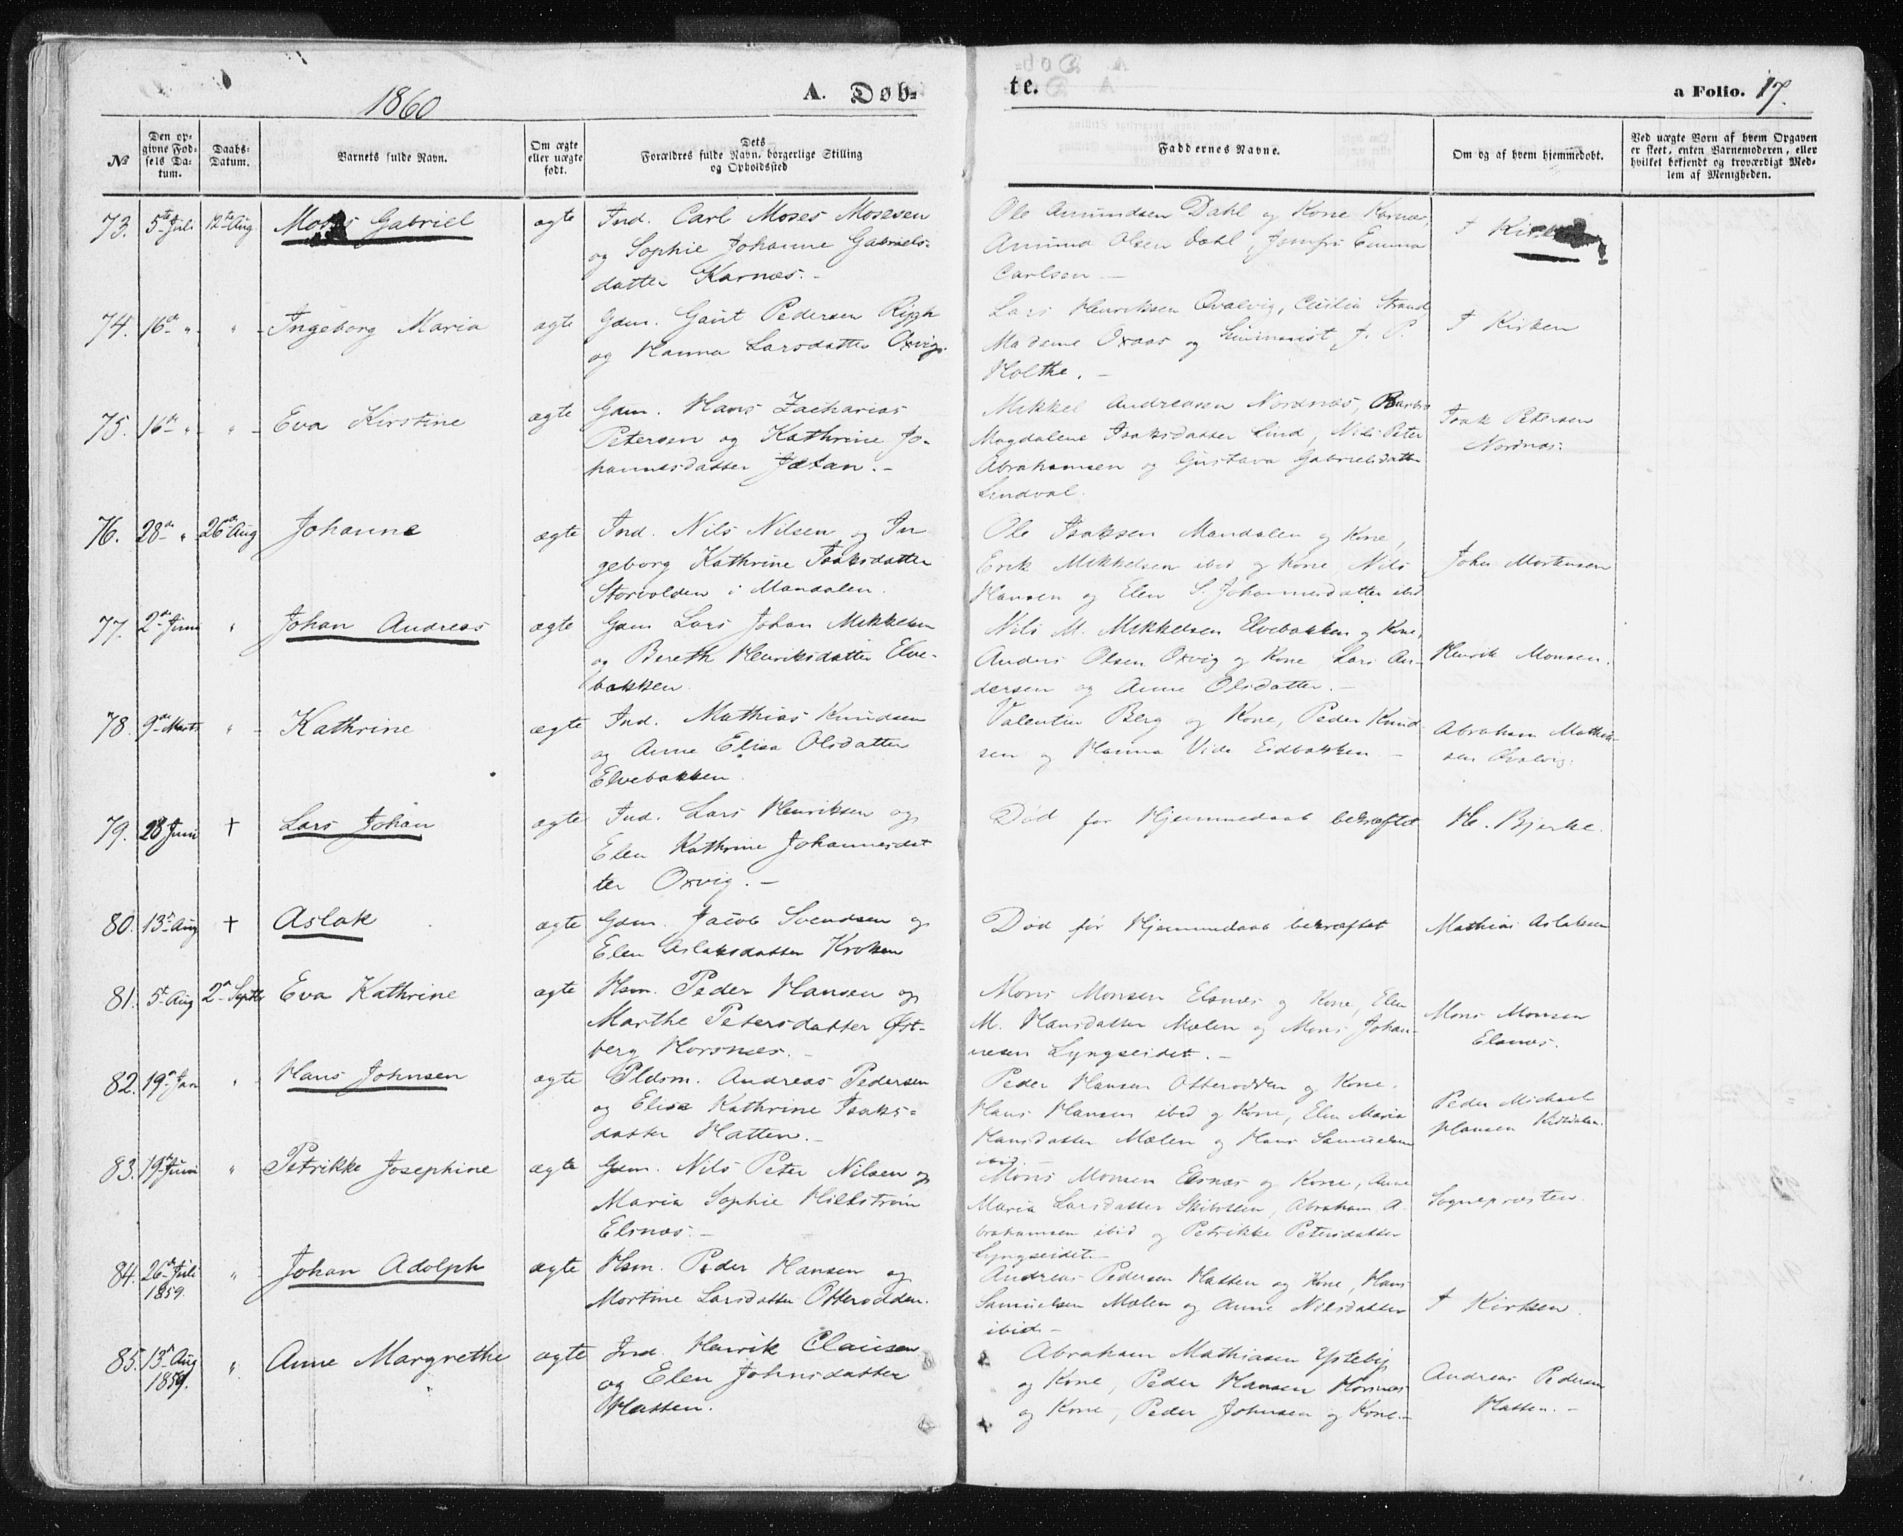 1860
A. Døb-
te.
a Folio. 17.
№
Den op-
givne Fød-
sels Da-
tum.
Daabs-
Datum.
Barnets fulde Navn.
Om ægte
eller uægte
født.
Dets
Forældres fulde Navn, borgerlige Stilling
og Opholdssted
Faddernes Navne.
Om og af hvem hjemmedøbt.
Ved uægte Børn af hvem Opgaven
er skeet, enten Barnemoderen, eller
hvilket bekjendt og troværdigt Med-
lem af Menigheden.
73. 5te Juli 12te Aug Moses Gabriel ægte
Ind. Carl Moses Mosesen
og Sophie Johanne Gabriels-
datter Karnæs.-
Ole Amundsen Dahl og Kone Karnæs,
Amund Olsen Dahl, Jomfr. Emma
Carlsen -
I Kirken
74. 16de " " Ingeborg Maria ægte
Gdm. Gaut Pedersen Rygh
og Hanna Larsdatter Oxvig.
Lars Henriksen Qvalvig, Cecilia Strand
Madame Oxaas og Seminarist J. P.
Holthe.-
I Kirken
75. 16de " " Eva Kirstine ægte
Gdm. Hans Zacharias
Petersen og Kathrine Jo-
hannesdatter Jætan.-
Mikkel Andreasen Nordnæs, Barbro
Magdalena Isaksdatter Lind, Nils Peter
Abrahamsen og Gustava Gabrielsdatter
Lindval.
Isak Petersen
Nordnæs.
76. 28de " 26de Aug Johanne ægte
Ind. Nils Nilsen og In
geborg Kathrine Isaksdatter
Storvolden i Mandalen.
Ole Isaksen Mandalen og Kone,
Erik Mikkelsen ibid og Kone, Nils
Hansen og Elen S. Johannesdatter ibid
John Mortensen
77. 2den Juni " Johan Andreas ægte
Gdm Lars Johan Mikkelsen
og Bereth Henriksdatter Elve-
bakken.
Nils M. Mikkelsen Elvebakken og Kone,
Anders Olsen Oxvig og Kone, Lars An-
dersen og Anne Olsdatter.-
Henrik Monsen.
78. 9de Marts " Kathrine ægte
Ind. Mathias Knudsen
og Anne Elisa Olsdatter
Elvebakken.
Valentin Berg og Kone, Peder Knud
sen og Hanna Vide Eidbakken -
Abraham Mathia-
sen Qvalvig.
79. 28 Juni † Lars Johan ægte
Ind. Lars Henriksen og
Elen Kathrine Johannesdat
ter Oxvig.-
Død før Hjemmedaab bekræftet
H. Bjerke.
80. 13de Aug † Aslak ægte
Gdm. Jacob Svendsen og
Elen Aslaksdatter Kroken
Død før Hjemmedaab bekræftet
Mathias Aslaksen
81. 5te Aug 2den Septbr Eva Kathrine ægte
Hsm. Peder Hansen og
Marthe Petersdatter Øst-
berg Horsnæs.-
Mons Monsen Elsnæs og Kone, Elen
M. Hansdatter Mælen og Mons Johan-
nesen Lyngseidet.-
Mons Monsen
Elsnæs.
82. 19de Jan " Hans Johnsen ægte
Pldsm. Andreas Pedersen
og Elisa Kathrine Isaks-
datter Hatten.-
Peder Hansen Otterodden og Kone,
Hans Hansen ibid og Kone, Elen Maria
Hansdatter Mælen og Hans Samuelsen
ibid.
Peder Michael
Hansen Kitdalen.
83. 19de Juni " Petrikke Josephine ægte
Gdm. Nils Peter Nilsen og
Maria Sophie Hilkström
Elsnæs.-
Mons Monsen Elsnæs og Kone, Anne
Maria Larsdatter Skibotten, Abraham A-
brahamsen ibid og Petrikke Petersdatter
Lyngseidet.-
Sognepræsten.
84. 26de Juli " Johan Adolph ægte
1859.
Hsm. Peder Hansen og
Mortine Larsdatter Otterodden.
Andreas Pedersen Hatten og Kone, Hans
Samuelsen Mælen og Anne Nilsdatter
ibid.-
I Kirken.
85. 13de Aug " Anne Margrethe ægte
1859.
Ind. Henrik Clausen
og Elen Johnsdatter
Hatten.
Abraham Mathiasen Ytteby
og Kone, Peder Hansen Horsnæs
og Kone, Peder Johnsen og Kone.-
Andreas Pedersen
Hatten.-